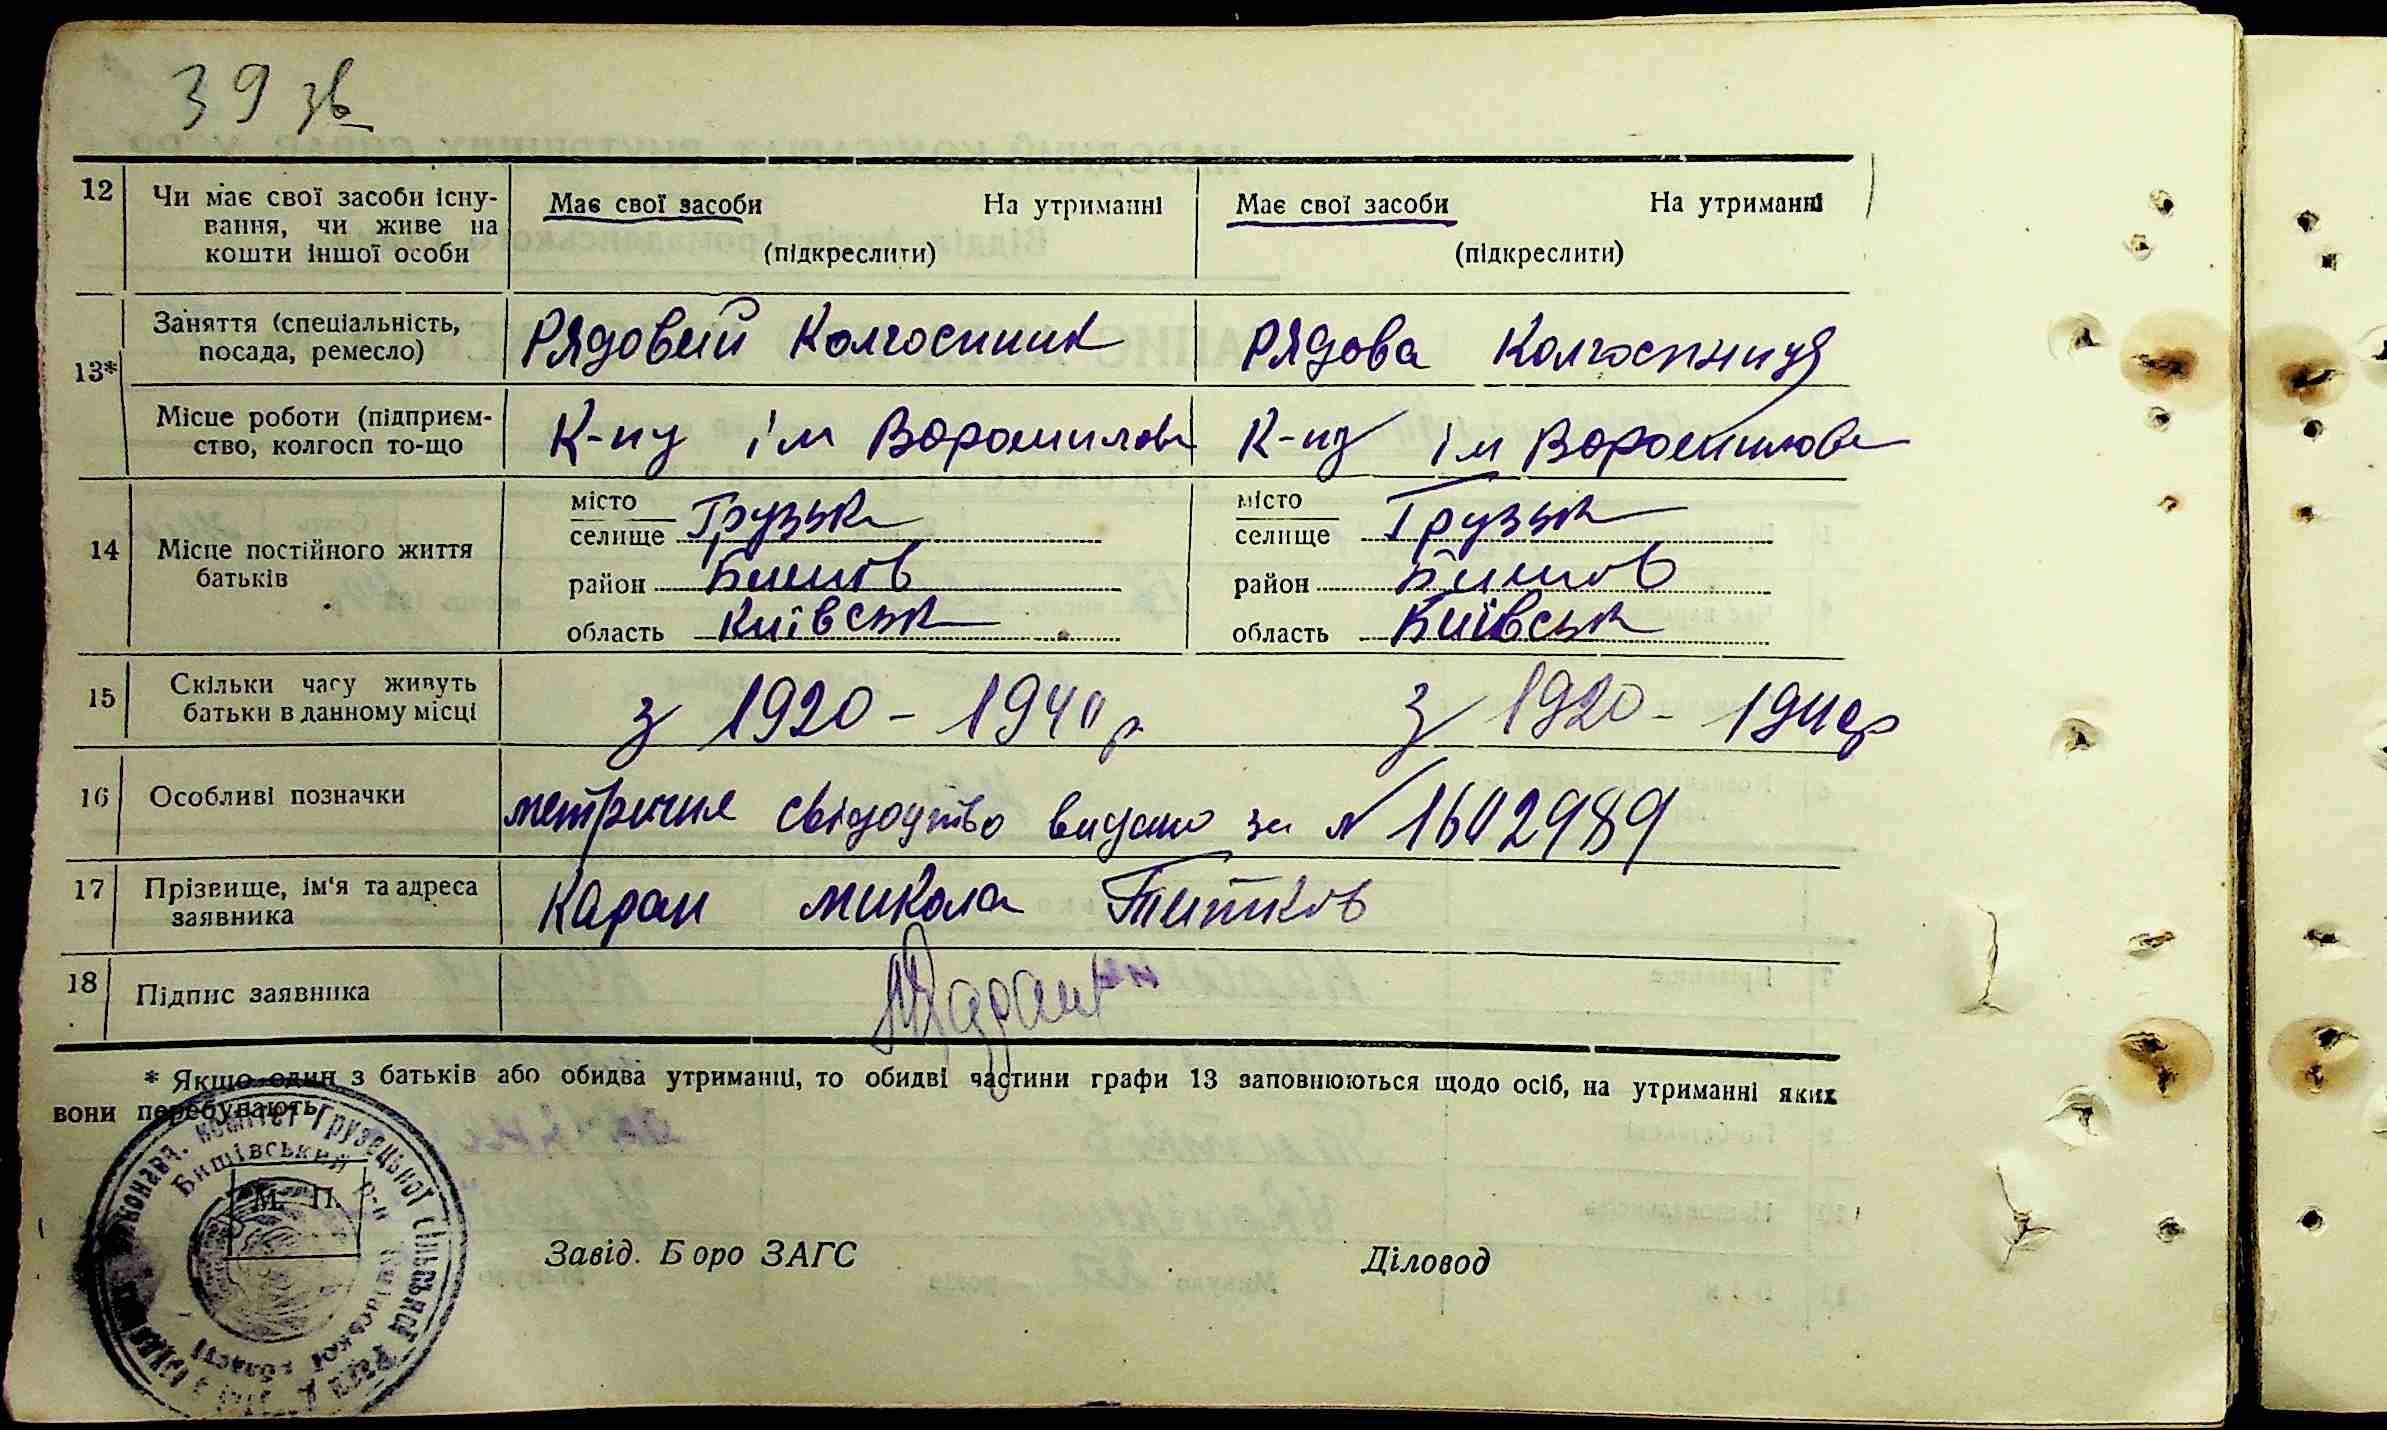 39 зв
12 Чи має свої засоби існу-
вання, чи живе на
кошти іншої особи
Має свої засоби На утриманні
(підкреслити)
Має свої засоби На утриманні
(підкреслити)
13*
Заняття (спеціальність,
посада, ремесло)
Рядовий Колгоспник
Рядова Колгоспниця
Місце роботи (підприєм-
ство, колгосп то-що
К-пу ім Ворошилова
К-пу ім Ворошилова
14 Місце постійного життя
батьків
місто
селище Грузька
район Бишов
область Київськ
місто
селище Грузьк
район Бишов
область Київськ
15 Скільки часу живуть
батьки в данному місці
з 1920 - 1940 р
з 1920 - 1940 р
16 Особливі позначки
метричне свідоцтво видано за № 1602989
17 Прізвище, ім'я та адреса
заявника
Каран Микола Титков
18 Підпис заявника
* Якщо один з батьків або обидва утриманці, то обидві частини графи 13 заповнюються щодо осіб, на утриманні яких
вони перебувають
комітет Грузецької сільської Ради
Бишівський р-н Київської області
М. П.
Завід. Бюро ЗАГС
Діловод